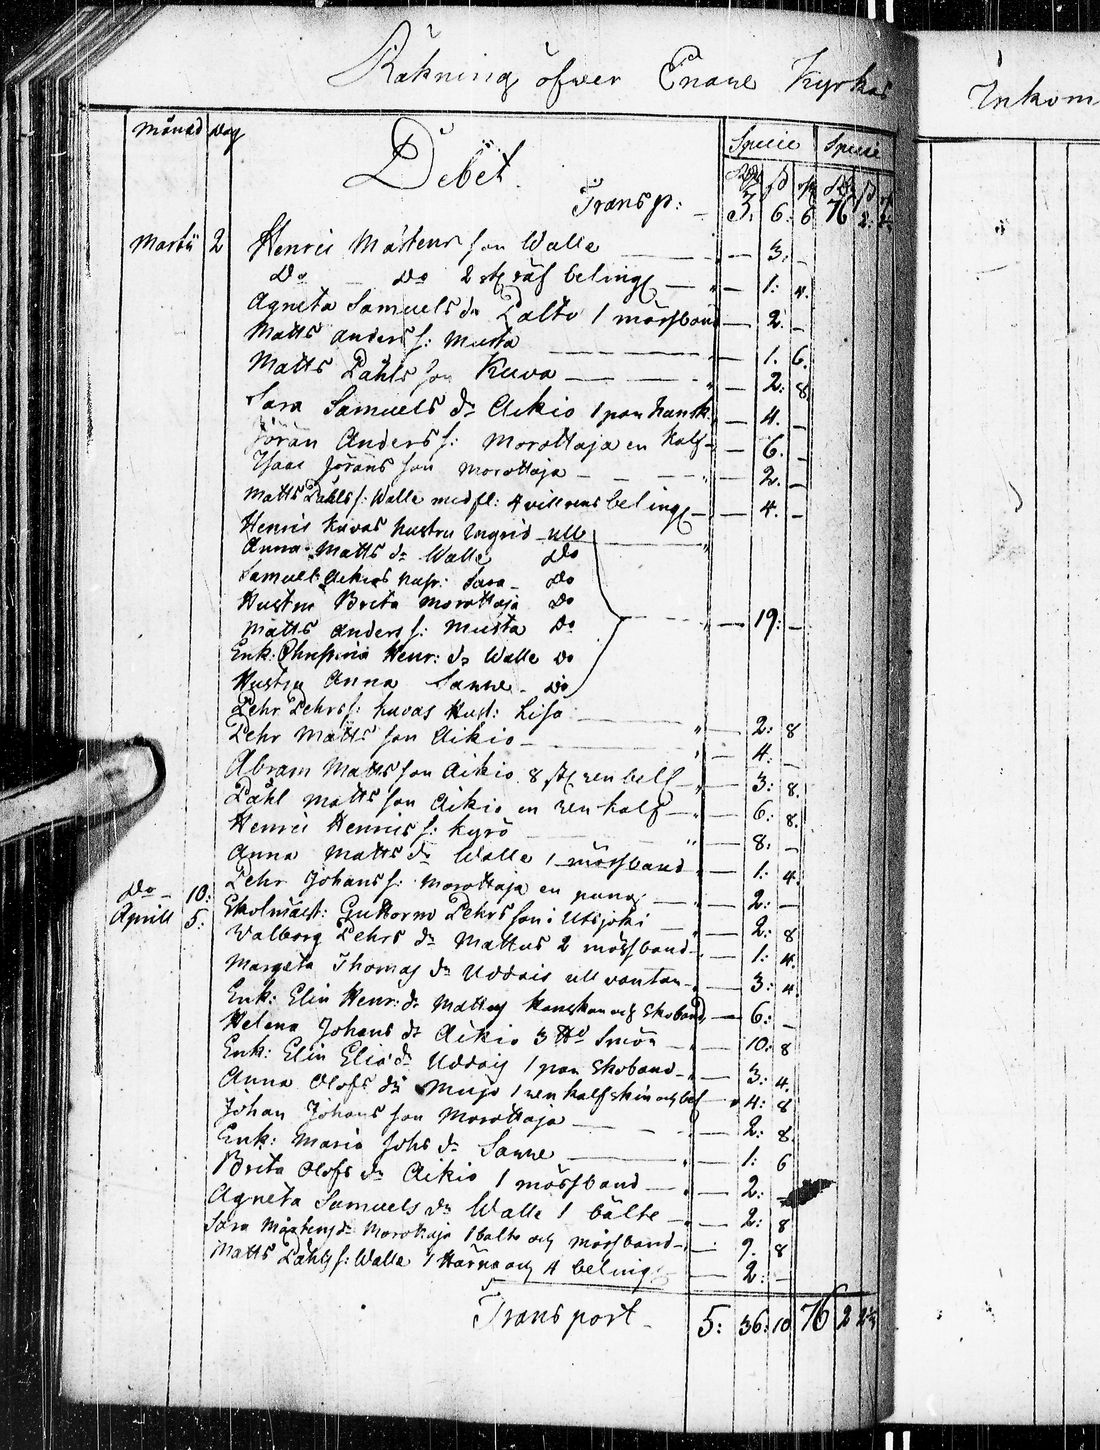 Räkning öfwer Enare Kyrkas
Inkom
Månad Dag
Debet
Specie Specie
Rdr ß rst Rdr ß rst
Transp: 3. 6. 6 76 2.
Martii 2 Henric Mårtens son Walle 3. –
Do Do 2 st räf belingg 1: 4.
Agneta Samuels dr Palto 1 mössband 2. –
Matts Anders s: Musta 1. 6.
Matts Påhls son Kuva 2: 8.
Sara Samuels dr Aikio 1 par hansk. 4. –
Jöran Anders s: Morottaja en kalf 6. –
Isaac Jörans son Morottaja 2. –
Matts Påhls s: Walle med fl: 4 villrens belingg 4. –
Henric Kuvas hustru Ingrid ull
Anna Matts dr Walle Do
Samuel Aikios hustr: Sara Do
Hustru Brita Morottaja Do 19: –
Matts Anders s: Musta Do
Enk: Christina Henr: dr Walle Do
Hustru Anna Sarre Do
Pehr Pehrs s: Kuvas Hust: Lisa 2: 8
Pehr Matts son Aikio 4. –
Abram Matts son Aikio 8 st ren bell 3: 8.
Påhl Matts son Aikio en ren kalf 6: 8.
Henric Henrics s: Kyrö 8: –
Anna Matts dr Walle 1 mössband 1: 4.
Do 10: Pehr Johans s: Morottaja en pung 2: –
Aprill 5: Skolmäst: Guttorm Pehrs son i Utsjoki 2: 8
Walborg Pehrs dr Mattus 2 mössband 1: 4.
Margeta Thomas dr Uddais ull vantar 3: 4.
Enk: Elin Henr: dr Mattus Hanskar och Skoband 6: –
Helena Johans dr Aikio 3 ℔ Smör 10: 8
Enk: Elin Elia dr Uddais 1 par Skoband 3: 4.
Anna Olofs dr Mujo 1 ren kalfskin och bel 4: 8
Johan Johans son Morottaja 2: 8.
Enk: Maria Johs dr Sarre 1: 6
Brita Olofs dr Aikio 1 mössband 2: –
Agneta Samuels dr Walle 1 bälte 2: 8
Sara Mårtens dr Morottaja 1 bälte och mössband 9. 8
Matts Påhls s: Walle 1 och 4 belingg 2: –
Transport 5: 36: 10 76 2 2½